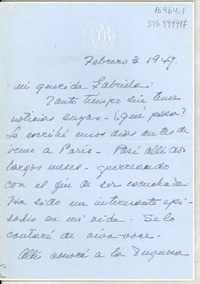 16964.1
Febrero 3 1947.
mi querida Gabriela:
Tanto tiempo sin tener
noticias suyas. ¿Que pasa?
Le escribí unos dias antes de
irme a Paris. Pasé allí dos
largos meses -
con el fin de ser consolada.
Ha sido un interesante epi-
sodio en mi vida. Se lo
contaré de viva-voce.
Allí conocí a la Duquesa